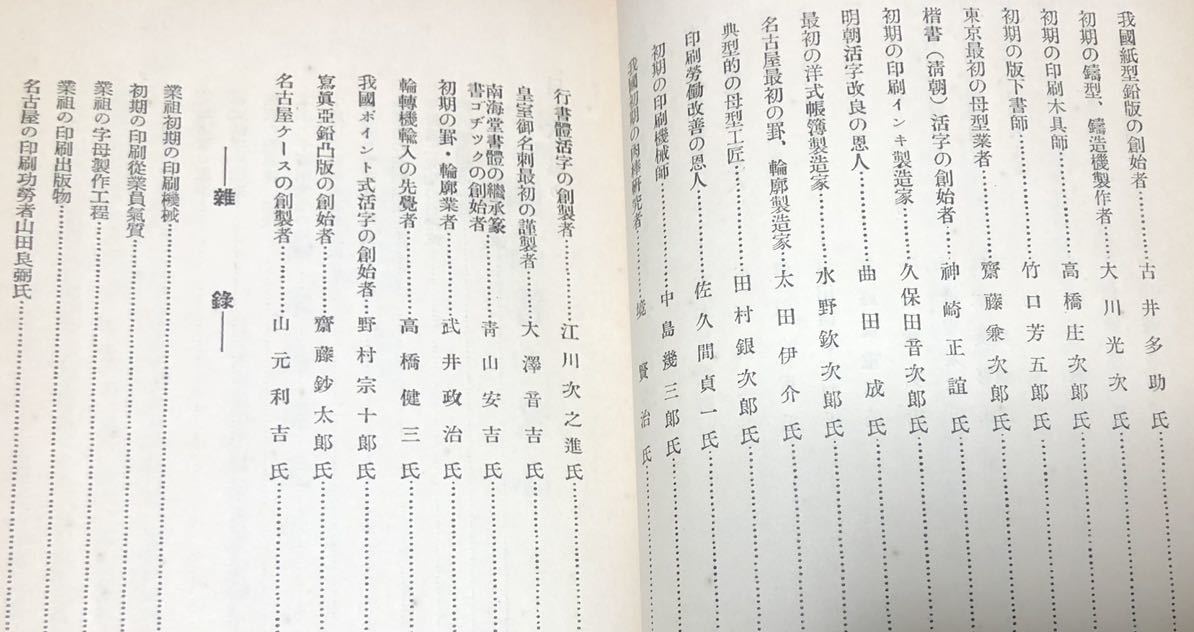 我國紙型鉛版の創始者…………古井多助氏…………
初期の鑄型、鑄造機製作者……大川光次氏…………
初期の印刷木具師………………高橋庄次郎氏…………
初期の版下書師…………………竹口芳五郎氏…………
東京最初の母型業者……………齋藤兼次郎氏…………
楷書(淸朝)活字の創始者……神崎正誼氏…………
初期の印刷インキ製造家………久保田音次郎氏…………
明朝活字改良の恩人……………曲田成氏…………
最初の洋式帳簿製造家…………水野欽次郎氏…………
名古屋最初の罫、輪廓製造家…太田伊介氏…………
典型的の母型工匠………………田村銀次郎氏…………
印刷勞働改善の恩人……………佐久間貞一氏…………
初期の印刷機械師………………中島幾三郎氏…………
我國初期の肉棒研究者…………境賢治氏…………
行書體活字の創製者……………江川次之進氏…………
皇室御名刺最初の謹製者………大澤音吉氏…………
南海堂書體の繼承篆
書ゴチックの創始者……………靑山安吉氏…………
初期の罫・輪廓業者……………武井政治氏…………
輪轉機輸入の先覺者……………高橋健三氏…………
我國ポイント式活字の創始者…野村宗十郎氏…………
寫眞亞鉛凸版の創始者…………齋藤鈔太郎氏…………
名古屋ケースの創製者…………山元利吉氏…………
――雜錄――
業祖初期の印刷機械…………
初期の印刷從業員氣質…………
業祖の字母製作工程…………
業祖の印刷出版物…………
名古屋の印刷功勞者山田良弼氏…………